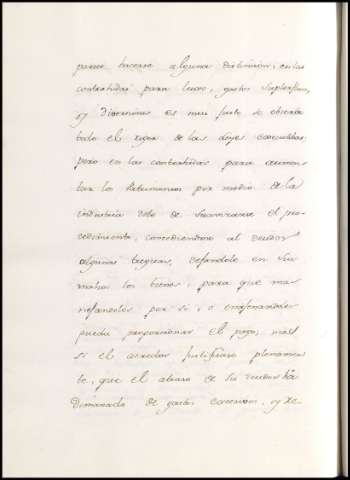 parece hacerse alguna distincion; en las
contrahidas para lucro, gastos superfluos,
y diversiones es muy justo se observe
todo el rigor de las Leyes establecidas,
pero en las contrahidas para aumen
tar los Patrimonios por medio de la
industria debe de suavizarse el pro-
cedimiento, concediendose al deudor
algunas treguas, dejandole en sus
manos los bienes, para que ma
nejandolos por si, o enagenandoles
pueda proporcionar el pago, mas
si el acredor justificare plenamen
te, que el atraso de su deudor há
dimanado de gastos excesivos, y de-